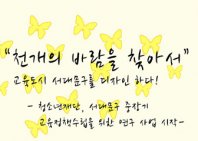 “천개의 바람을 찾아서”
교육도시 서대문구를 디자인 하다!
- 청소년재단, 서대문구 중장기
교육정책수립을 위한 연구 사업 시작-